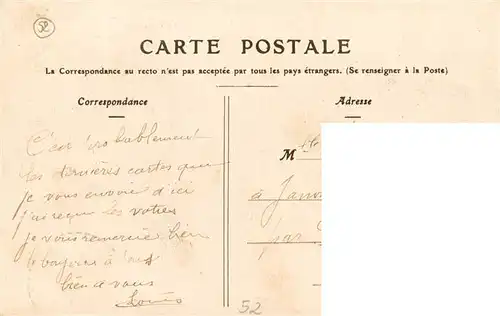 52
CARTE POSTALE
La Correspondance au recto n'est pas acceptée par tous les pays étrangers. (Se renseigner à la Poste)
Correspondance
Adresse
C'est probablement
les dernières cartes que
je vous envoie d'ici
j'ai reçu les votres
je vous remercie bien
bien à vous
Louis
M
à Janv
par
52